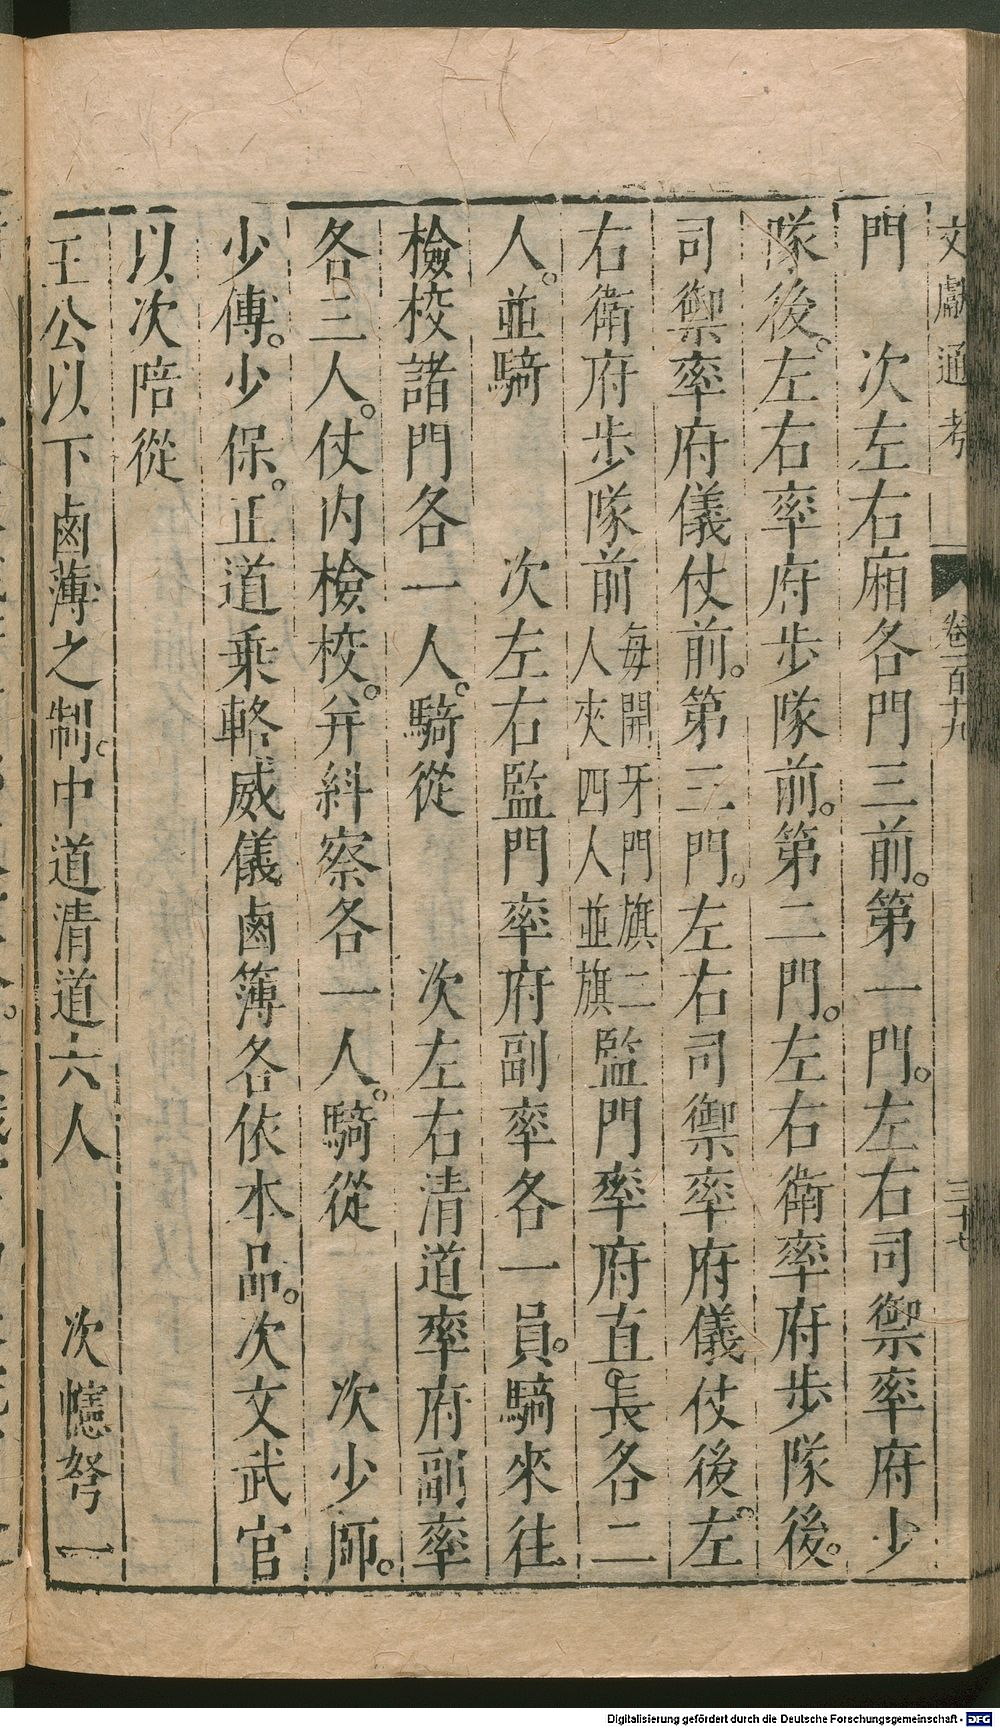 文獻通考 卷一百十九 三十七
門 次左右廂各門三前。第一門。左右司禦率府少
隊後。左右率府步隊前。第二門。左右衛率府步隊後。
司禦率府儀仗前。第三門。左右司禦率府儀仗後。左
右衛府步隊前每開牙門旗二人夾四人並旗監門率府直。長各二
人。並騎 次左右監門率府副率各一員。騎來往
檢校諸門各一人。騎從 次左右清道率府副率
各三人。仗內檢校。并糾察各一人。騎從 次少師。
少傅。少保。正道乘輅威儀鹵簿各依本品。次文武官
以次陪從
王公以下鹵薄之制。中道清道六人 次幰弩一
Digitalisierung gefördert durch die Deutsche Forschungsgemeinschaft - DFG